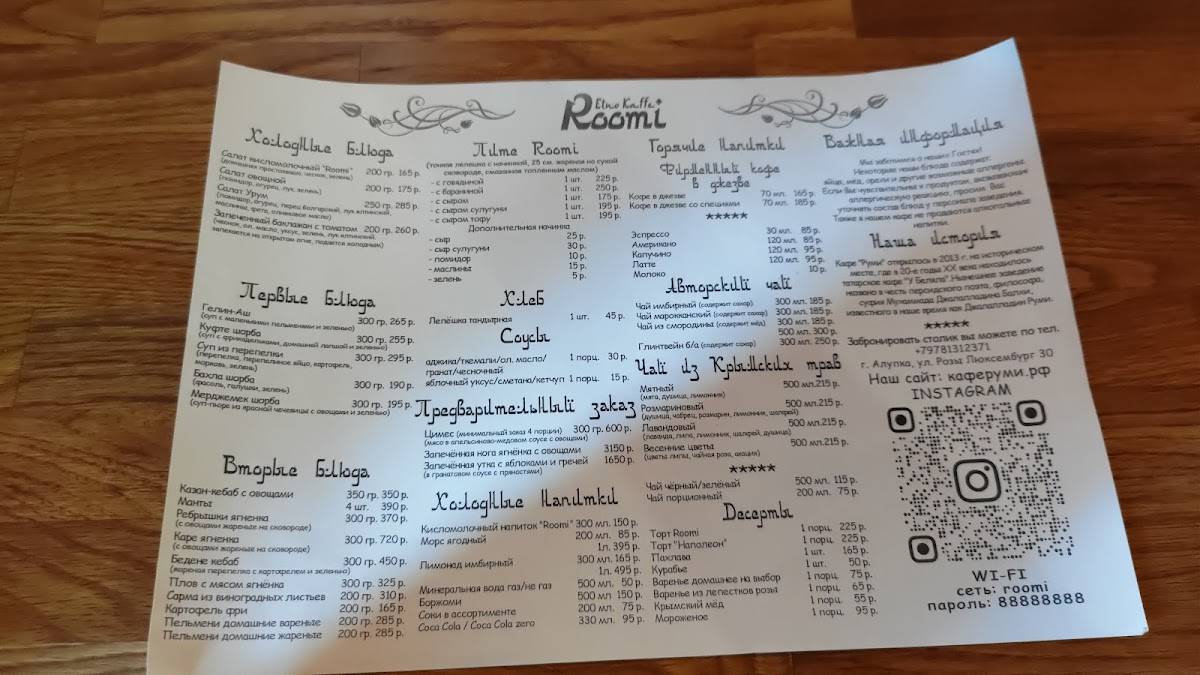 Etno Kaffe
Roomi
Холодные Блюда
Салат кисломолочный "Roomi" 200 гр. 165 р.
(домашняя простокваша, чеснок, зелень)
Салат овощной 200 гр. 175 р.
(помидор, огурец, лук, зелень)
Салат Урум 250 гр 285 р.
(помидор, огурец, перец болгарский, лук ялтинский,
маслины, фета, оливковое масло)
Запеченный баклажан с томатом 200 гр. 260 р.
(чеснок, ол. масло, уксус, зелень, лук ялтинский,
запекается на открытом огне, подается холодным)
Первые Блюда
Гелин-Аш 300 гр. 265 р.
(суп с маленькими пельменями и зеленью)
Куфте шорба 300 гр. 255 р.
(суп с фрикадельками, домашней лапшой и зеленью)
Суп из перепелки 300 гр. 295 р.
(перепелка, перепелиное яйцо, картофель,
морковь, зелень)
Бахла шорба 300 гр. 190 р.
(фасоль, галушки, зелень)
Мерджемек шорба 300 гр. 195 р.
(суп-пюре из красной чечевицы с овощами и зеленью)
Вторые Блюда
Казан-кебаб с овощами 350 гр. 350 р.
Манты 4 шт. 390 р.
Ребрышки ягненка 300 гр. 370 р.
(с овощами жареные на сковороде)
Каре ягненка 300 гр. 720 р.
(с овощами жареные на сковороде)
Бедене кебаб 300 гр. 450 р.
(жареная перепелка с картофелем и зеленью)
Плов с мясом ягнёнка 300 гр. 325 р.
Сарма из виноградных листьев 200 гр. 310 р.
Картофель фри 200 гр. 165 р.
Пельмени домашние вареные 200 гр. 285 р.
Пельмени домашние жареные 200 гр. 285 р.
Пите Roomi
(тонкая лепешка с начинкой, 25 см, жареная на сухой
сковороде, смазанная топленным маслом)
- с говядиной 1 шт. 225 р.
- с бараниной 1 шт. 250 р.
- с сыром 1 шт. 175 р.
- с сыром сулугуни 1 шт. 195 р.
- с сыром тофу 1 шт. 195 р.
Дополнительная начинка
- сыр 25 р.
- сыр сулугуни 30 р.
- помидор 10 р.
- маслины 15 р.
- зелень 5 р.
Хлеб
Лепёшка тандырная 1 шт. 45 р.
Соусы
аджика/ткемали/ол. масло/ 1 порц. 30 р.
гранат/чесночный
яблочный уксус/сметана/кетчуп 1 порц. 15 р.
Предварительный заказ
Цимес (минимальный заказ 4 порции) 300 гр. 600 р.
(мясо в апельсиново-медовом соусе с овощами)
Запечённая нога ягнёнка с овощами 3150 р.
Запечённая утка с яблоками и гречей 1650 р.
(в гранатовом соусе с пряностями)
Холодные Напитки
Кисломолочный напиток "Roomi" 300 мл. 150 р.
Морс ягодный 200 мл. 85 р.
1л. 395 р.
Лимонад имбирный 300 мл. 165 р.
1л. 495 р.
Минеральная вода газ/не газ 500 мл. 50 р.
Боржоми 500 мл 150 р.
Соки в ассортименте 200 мл. 75 р.
Coca Cola / Coca Cola zero 330 мл. 95 р.
Горячие Напитки
Фирменный кофе
в джезве
Кофе в джезве 70 мл. 165 р.
Кофе в джезве со специями 70 мл. 185 р.
★★★★★
Эспрессо 30 мл. 85 р.
Американо 120 мл. 85 р.
Капучино 120 мл. 95 р.
Латте 120 мл. 95 р.
Молоко 10 р.
Авторский чай
Чай имбирный (содержит сахар) 300 мл. 185 р.
Чай марокканский (содержит сахар) 300 мл. 185 р.
Чай из смородины (содержит мёд) 300 мл. 185 р.
500 мл. 300 р.
Глинтвейн б/а (содержит сахар) 300 мл. 250 р.
Чай из Крымских трав
Мятный 500 мл.215 р.
(мята, душица, лимонник)
Розмариновый 500 мл.215 р.
(душица, чабрец, розмарин, лимонник, шалфей)
Лавандовый 500 мл.215 р.
(лаванда, липа, лимонник, шалфей, душица)
Весенние цветы 500 мл.215 р.
(цветы липы, чайная роза, акации)
★★★★★
Чай чёрный/зелёный 500 мл. 115 р.
Чай порционный 200 мл. 75 р.
Десерты
Торт Roomi 1 порц. 225 р.
Торт "Наполеон" 1 порц. 225 р.
Пахлава 1 шт. 165 р.
Курабье 1 шт. 50 р.
Варенье домашнее на выбор 1 порц. 75 р.
Варенье из лепестков розы 1 порц. 65 р.
Крымский мёд 1 порц. 55 р.
Мороженое 1 порц. 95 р.
Важная информация
Мы заботимся о наших Гостях!
Некоторые наши блюда содержат:
яйца, мёд, орехи и другие возможные аллергены.
Если Вы чувствительны к продуктам, вызывающим
аллергическую реакцию, просим, Вас
уточнять состав блюд у персонала заведения.
Также в нашем кафе не продаются алкогольные
напитки.
Наша история
Кафе "Руми" открылось в 2013 г. на историческом
месте, где в 20-е годы XX века находилось
татарское кафе "У Беляла". Нынешнее заведение
названо в честь персидского поэта, философа,
суфия Мухаммада Джалалладдина Балхи,
известного в наше время как Джалалладин Руми.
★★★★★
Забронировать столик вы можете по тел.
+79781312371
г. Алупка, ул. Розы Люксембург 30
Наш сайт: каферуми.рф
INSTAGRAM
WI-FI
сеть: roomi
пароль: 88888888